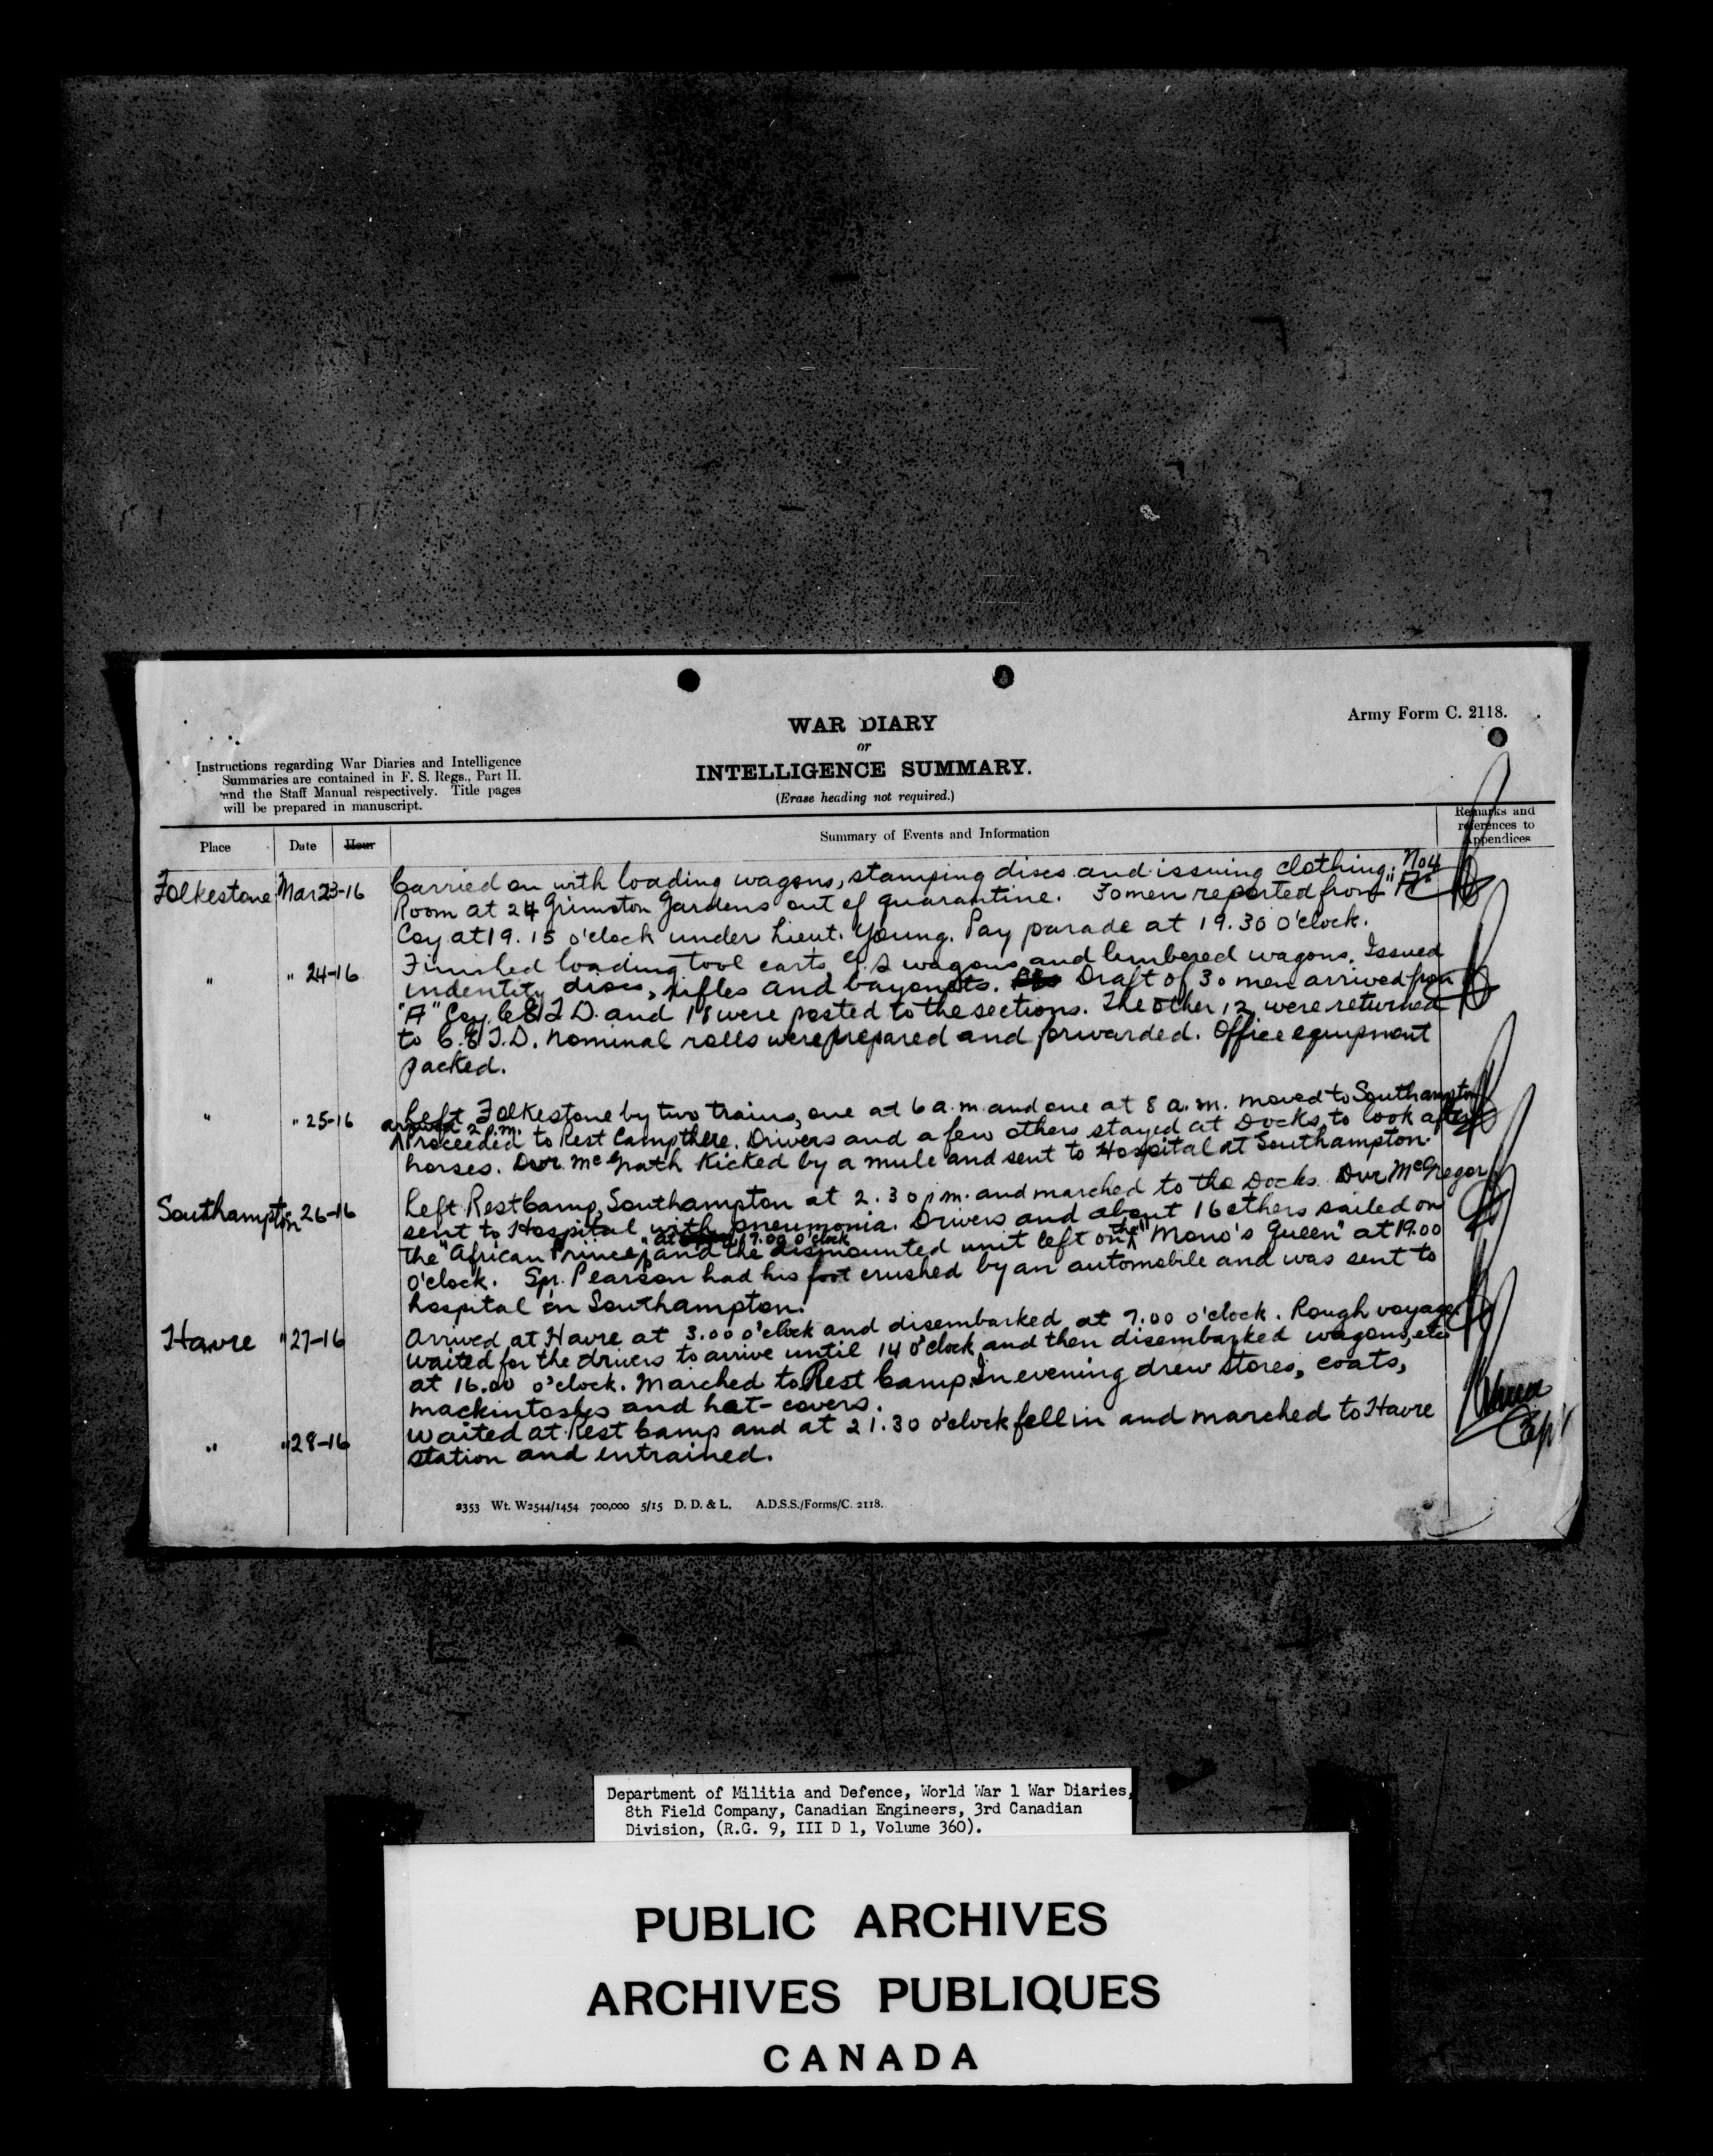 Army Form C. 2118.
WAR DIARY
or
INTELLIGENCE SUMMARY.
(Erase heading not required.)
Instructions regarding War Diaries and Intelligence
Summaries are contained in F. S. Regs., Part II.
and the Staff Manual respectively. Title pages
will be prepared in manuscript.
Place Date Hour Summary of Events and Information Remarks and references to Appendices
Folkestone Mar 23-16 Carried on with loading wagons, stamping discs and issuing clothing; No 4
Room at 24 Grimston Gardens out of quarantine. 30 men reported from "A"
Coy at 19.15 o'clock under Lieut. Young. Pay parade at 19.30 o'clock.
" " 24-16 Finished loading tool carts, G.S wagons and limbered wagons. Issued
indentity discs, rifles and bayonets. Draft of 30 men arrived from
"A" Coy. C.E.T.D. and 18 were posted to the sections. The other 12 were returned
to C.E.T.D. Nominal rolls were prepared and forwarded. Office equipment
packed.
" " 25-16 Left Folkestone by two trains, one at 6 a.m. and one at 8 a.m. moved to Southampton
arrived 2 p.m.
Proceeded to Rest Camp there. Drivers and a few others stayed at Docks to look after
horses. Dvr. McGrath kicked by a mule and sent to Hospital at Southampton.
Southampton " 26-16 Left Rest Camp, Southampton at 2.30 p.m. and marched to the Docks. Dvr McGregor
sent to Hospital with pneumonia. Drivers and about 16 others sailed on
the "African Prince" at 17.00 o'clock and the dismounted unit left on the "Mono's Queen" at 19.00
o'clock. Spr. Pearson had his foot crushed by an automobile and was sent to
hospital in Southampton.
Havre " 27-16 Arrived at Havre at 3.00 o'clock and disembarked at 7.00 o'clock. Rough voyage.
Waited for the drivers to arrive until 14 o'clock and then disembarked wagons, etc
at 16.00 o'clock. Marched to Rest Camp. In evening drew stores, coats,
mackintoshes and hat-covers.
" " 28-16 Waited at Rest Camp and at 21.30 o'clock fell in and marched to Havre
station and entrained.
Capt
2353 Wt. W2544/1454 700,000 5/15 D. D. & L. A.D.S.S./Forms/C. 2118.
Department of Militia and Defence, World War 1 War Diaries,
8th Field Company, Canadian Engineers, 3rd Canadian
Division, (R.G. 9, III D 1, Volume 360).
PUBLIC ARCHIVES
ARCHIVES PUBLIQUES
CANADA